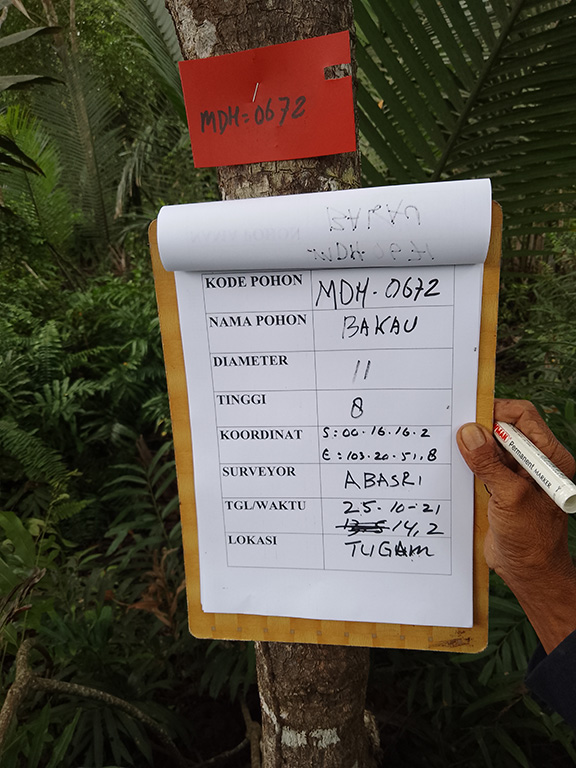 MDH=0672
KODE POHON MDH-0672
NAMA POHON BAKAU
DIAMETER 11
TINGGI 8
KOORDINAT S:00.16.16.2
E:103.20.51,8
SURVEYOR ABASRI
TGL/WAKTU 25-10-21
14,2
LOKASI TUGAM
Permanent MARKER